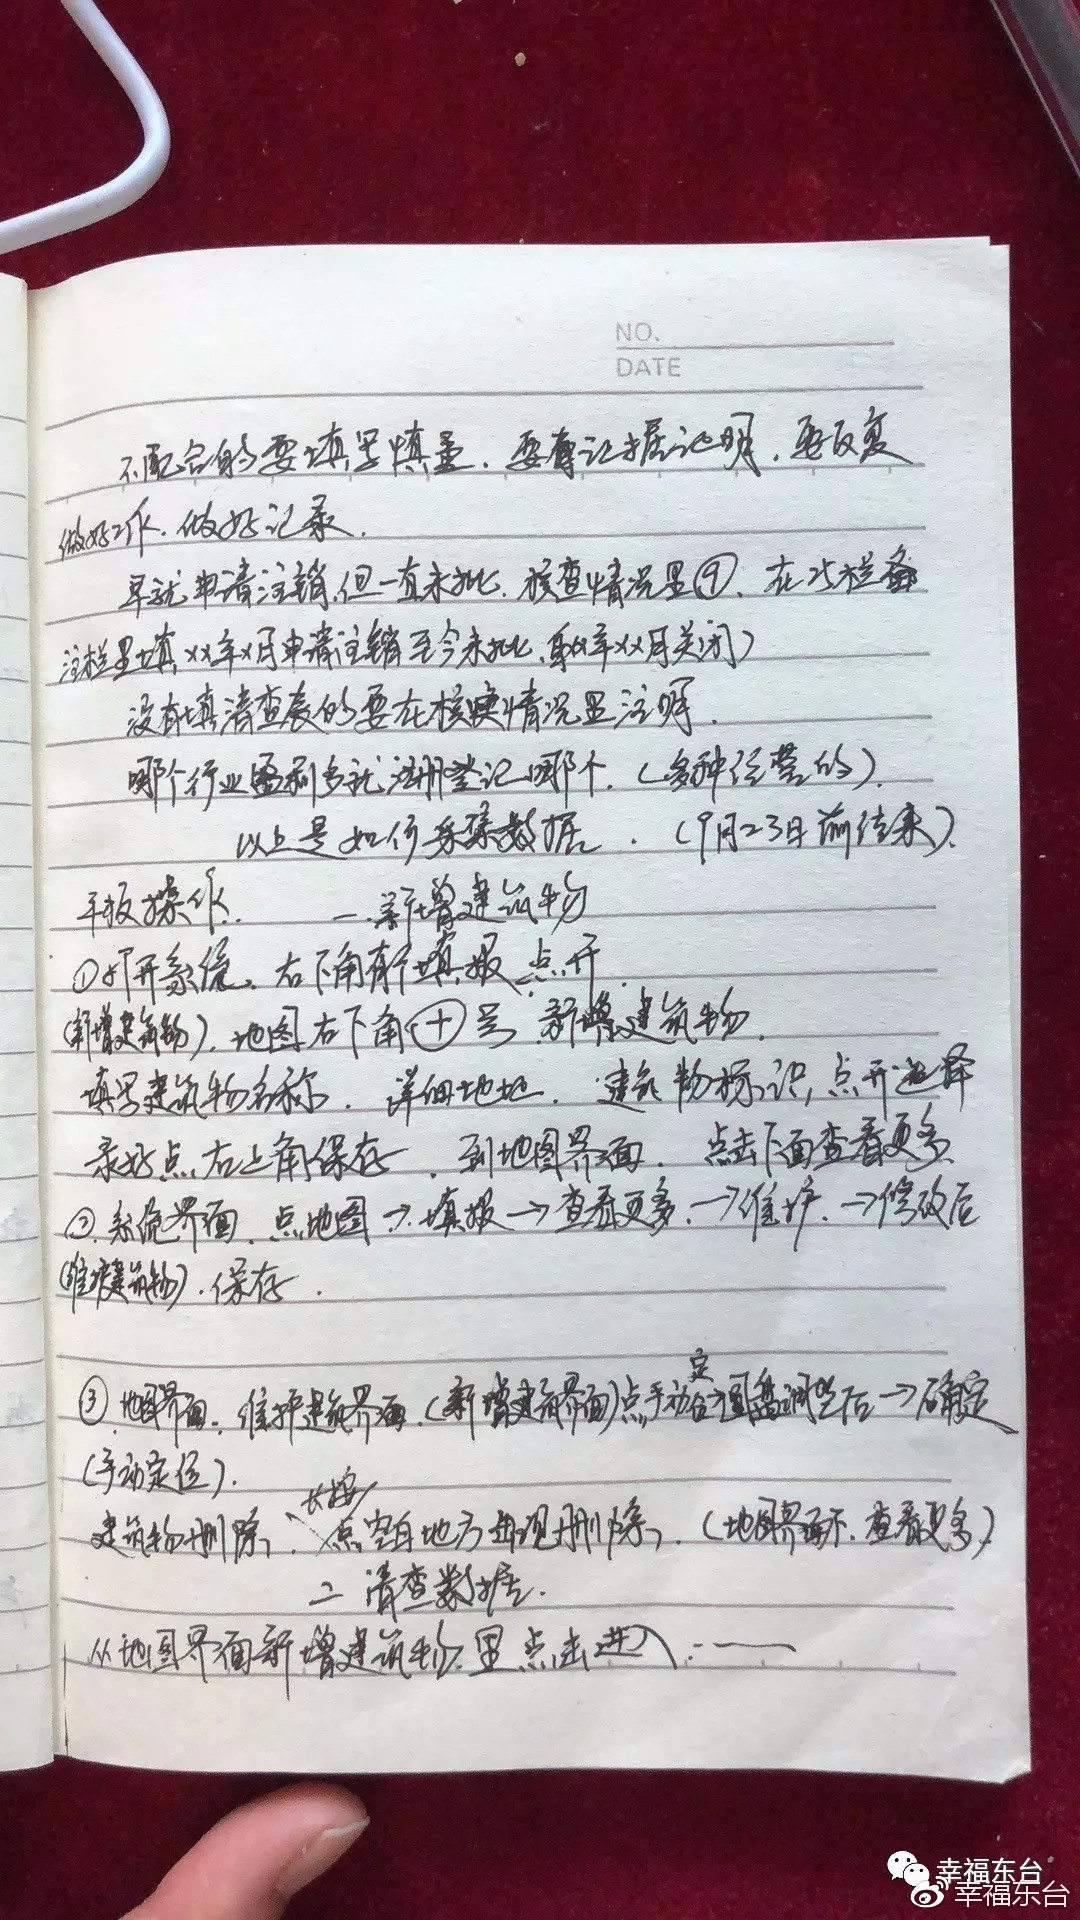 NO.
DATE
不配合的要填写慎重，要有记据证明，要反复
做好工作，做好记录.
早就申请注销，但一直未批，核查情况里⑨，在此栏备
注栏里填，××年×月申请注销至今未批，××年××月关闭）
没有填清查表的要在核实情况里注明.
哪个行业盈利多就注册登记哪个.（多种经营的）
以上是如何采集数据.（9月23日前结束）.
平板操作. 一.新增建筑物
①打开系统、右下角有个填报，点开
（新增建筑物），地图右下角⊕号 新增建筑物.
填写建筑物名称. 详细地址. 建筑物标识，点开选择
录好点右上角保存，到地图界面，点击下面查看更多
②.系统界面，点地图→填报→查看更多.→维护.→修改后
（维护建筑物）.保存.
③.地图界面，维护建筑界面.（新增建筑界面）点手动定位圆盘调整后→确定
（手动定位）.
建筑物删除，长按点空白地方出现删除，（地图界面下.查看更多）
二 清查数据.
从地图界面新增建筑物里点击进入.——
幸福东台
幸福东台